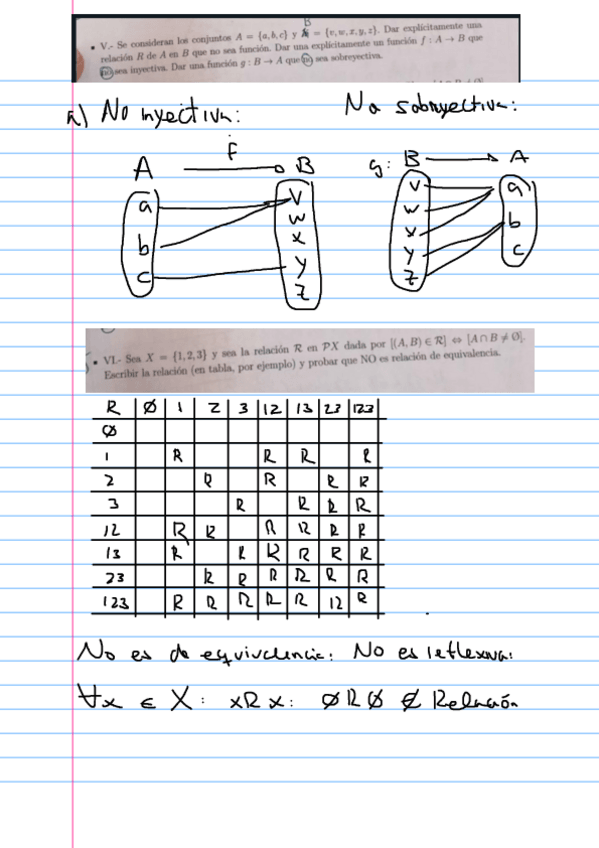 B
• V.- Se consideran los conjuntos A = {a, b, c} y = {v, w, x, y, z}. Dar explícitamente una
relación R de A en B que no sea función. Dar una explícitamente un función f : A → B que
no sea inyectiva. Dar una función g : B → A que no sea sobreyectiva.
a) No inyectiva: No sobreyectiva:
f
A B g: B A
a v v a
w w
b x x b
y y
c z z c
• VI.- Sea X = {1, 2, 3} y sea la relación R en PX dada por [(A, B) ∈ R] ⇔ [A ∩ B ≠ Ø].
Escribir la relación (en tabla, por ejemplo) y probar que NO es relación de equivalencia.
R Ø 1 2 3 12 13 23 123
Ø
1 R R R R
2 R R R R
3 R R R R
12 R R R R R R
13 R R R R R R
23 R R R R R R
123 R R R R R R R
No es de equivalencia: No es reflexiva:
∀x ∈ X: xRx: ØRØ ∉ Relación